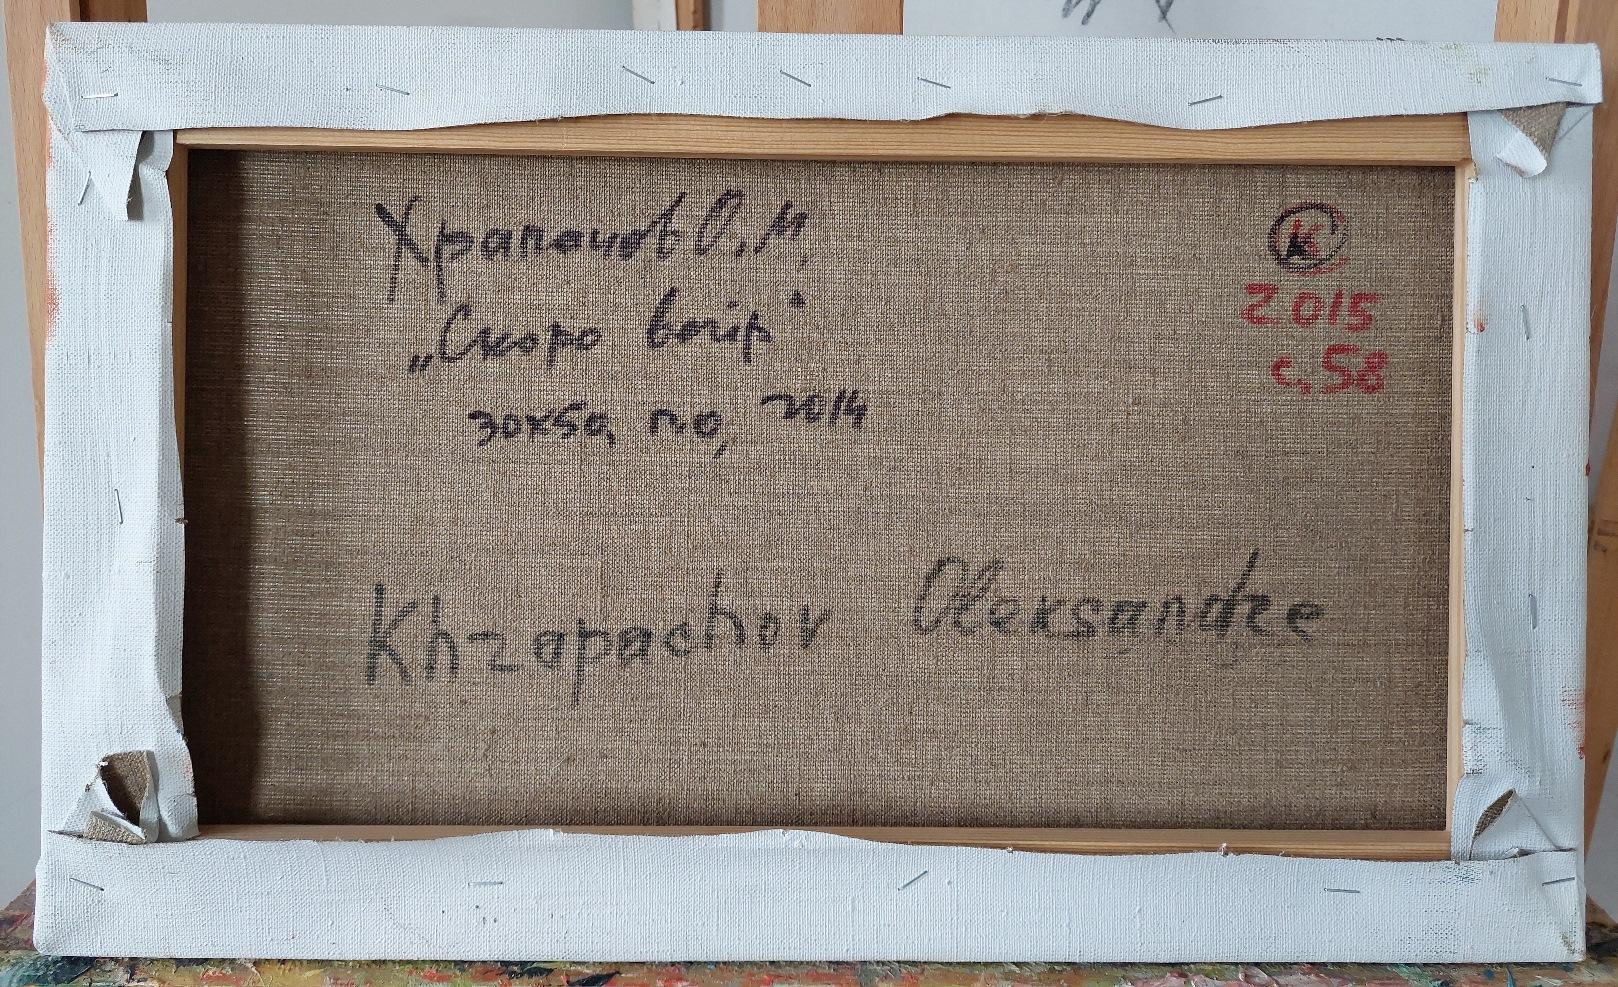 Храпачов О.М.
„Скоро вечір"
30х50, по, 2014
К
2015
с. 58
Khrapachov Oleksandre